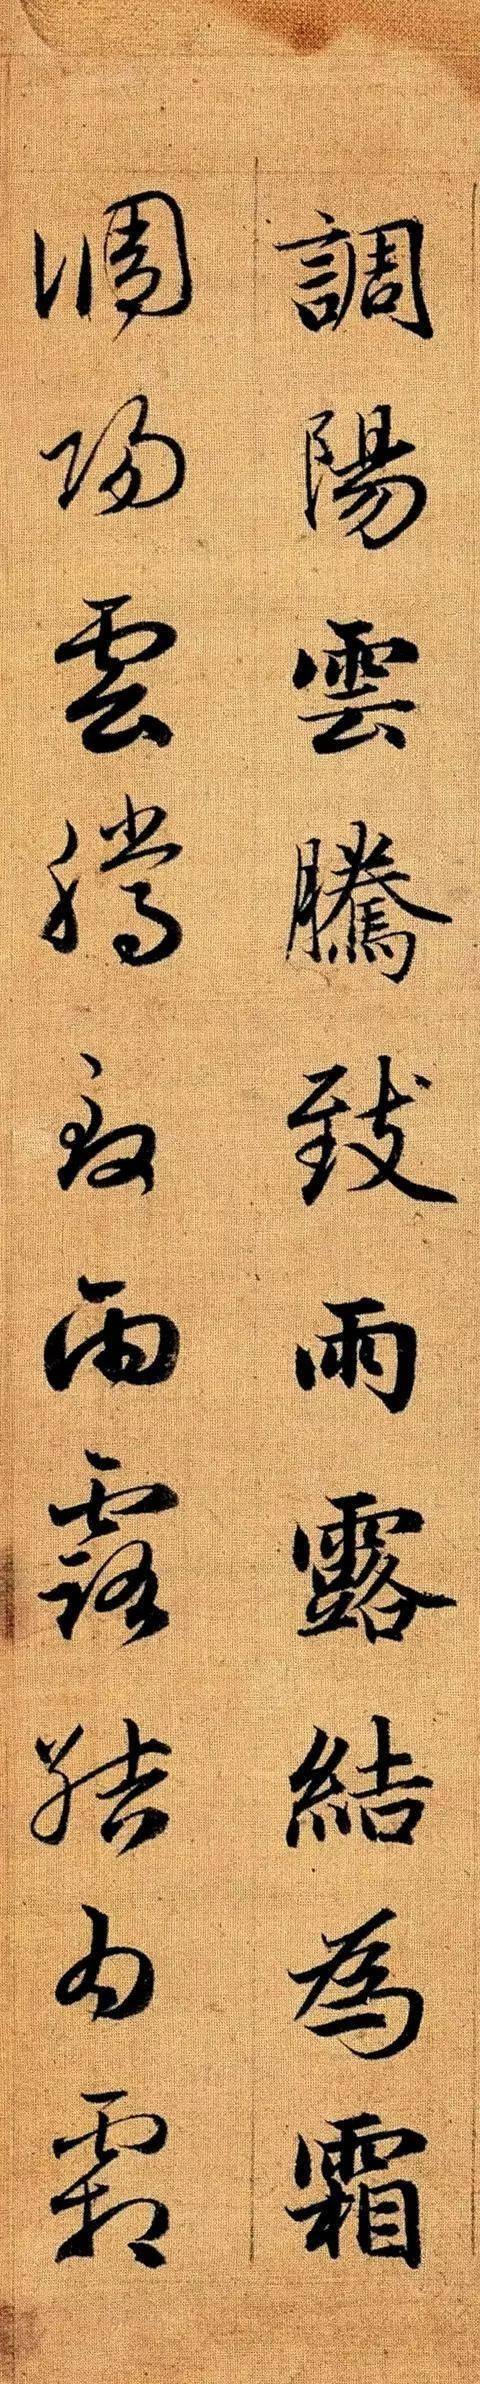 調陽雲騰致雨露結為霜
調陽雲騰致雨露結為霜